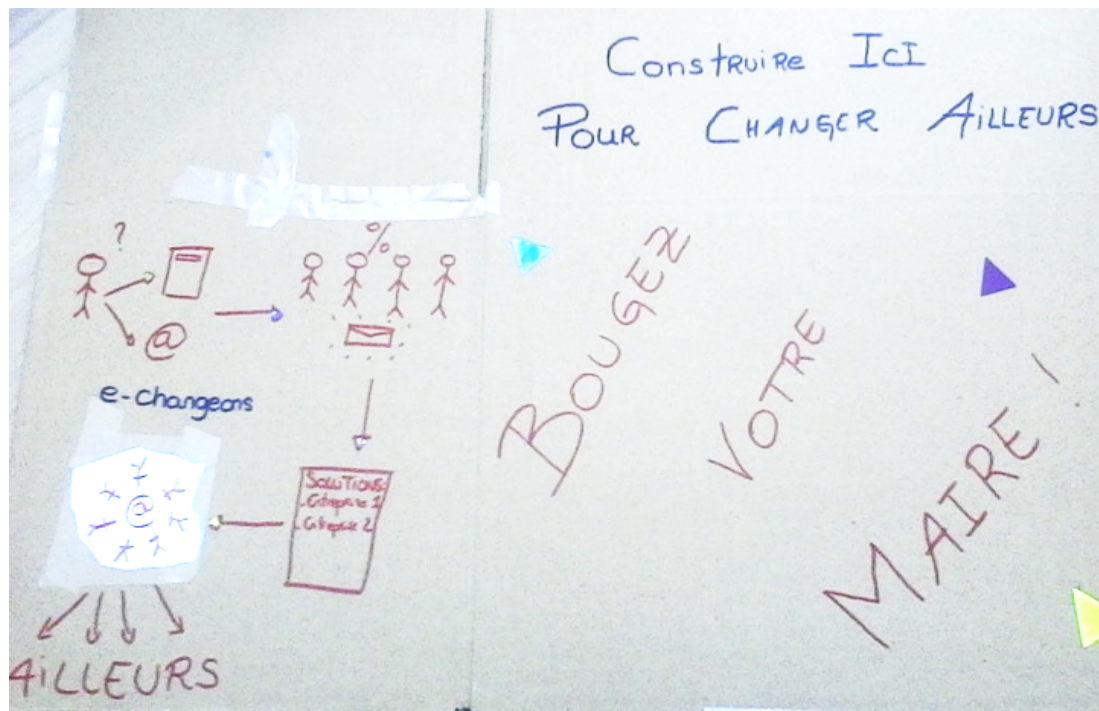 Construire Ici
Pour Changer Ailleurs
?
%
@
e-changeons
Solutions:
- Entreprise 1
- Entreprise 2
@
AiLLEURS
BOUGEZ
VOTRE
MAIRE !